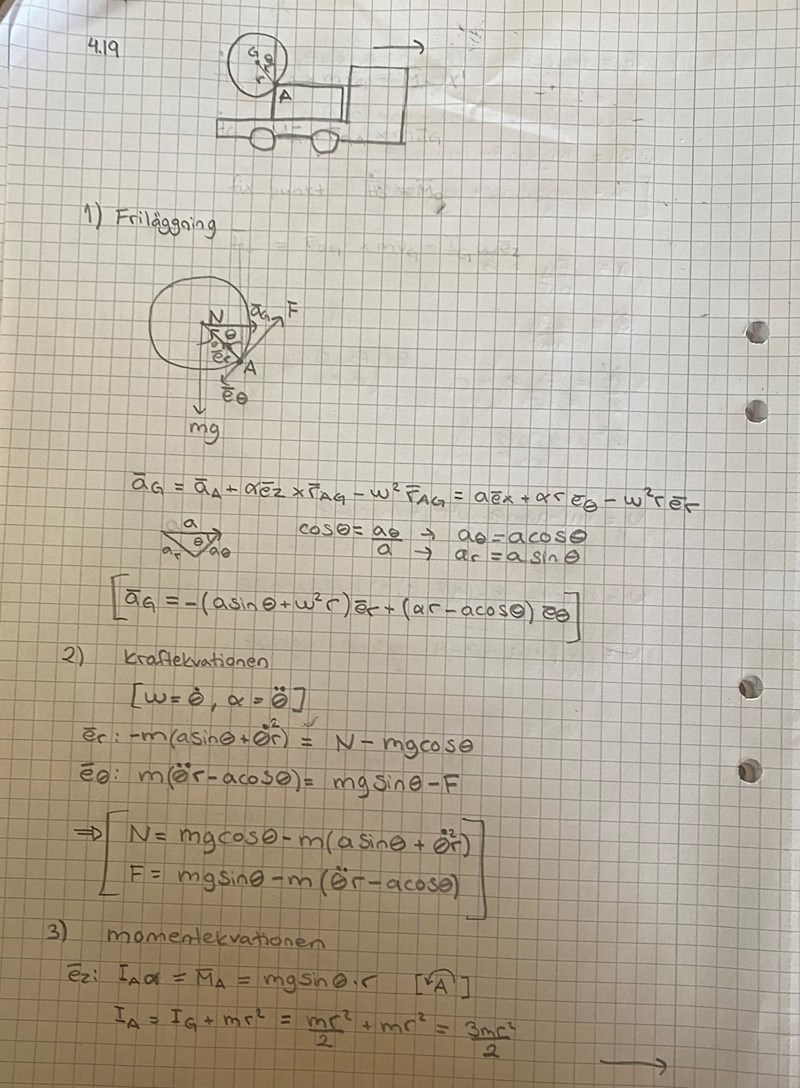 4.19
G θ
r
A
1) Friläggning
N āG F
θ
ēr A
ēθ
mg
āG = āA + αēz × r̄AG - ω² r̄AG = aēx + αr ēθ - ω²r ēr
a
θ
ar aθ
cosθ = aθ/a → aθ = acosθ
→ ar = a sinθ
[āG = -(asinθ + ω²r)ēr + (αr - acosθ) ēθ]
2) kraftekvationen
[ω = θ̇, α = θ̈]
ēr: -m(asinθ + θ̇²r) = N - mgcosθ
ēθ: m(θ̈r - acosθ) = mgsinθ - F
⇒ [N = mgcosθ - m(asinθ + θ̇²r)
F = mgsinθ - m(θ̈r - acosθ)]
3) momentekvationen
ēz: IAα = M̄A = mgsinθ·r [A]
IA = IG + mr² = mr²/2 + mr² = 3mr²/2